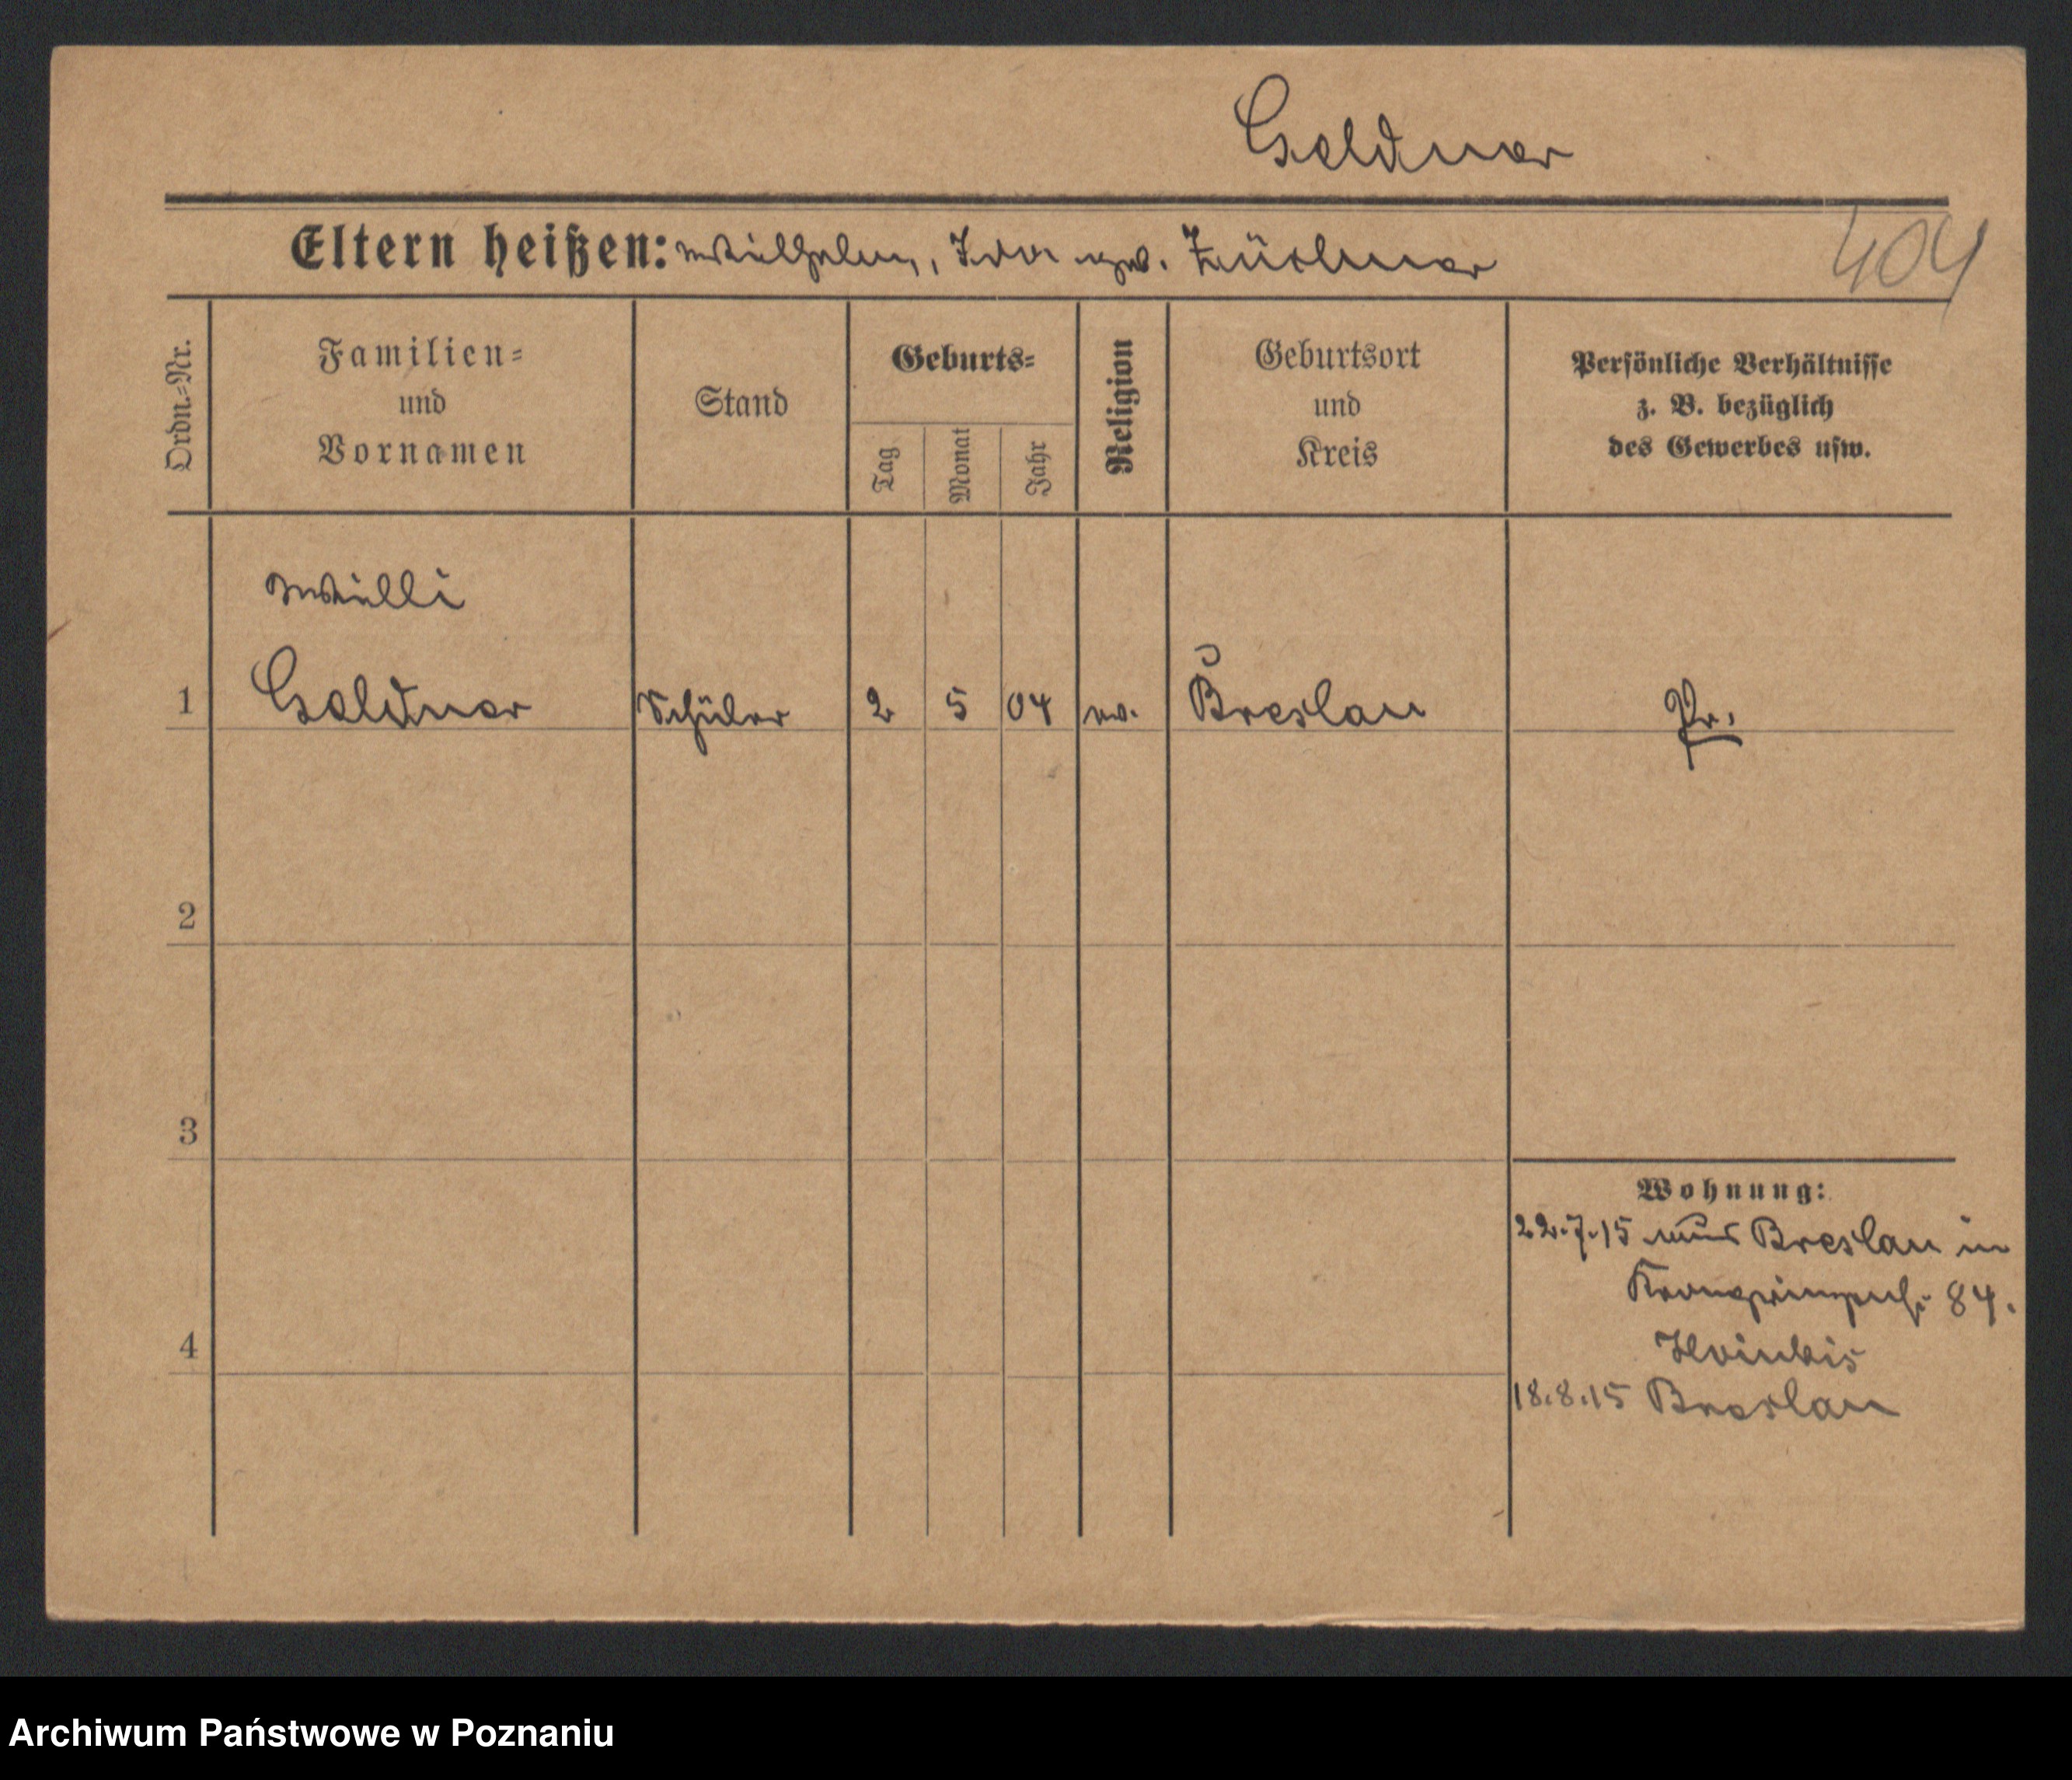 Geldner
Eltern heißen: Wilhelm, Ida
404
Ordn.-Nr.
Familien-
und
Vornamen
Stand
Geburts-
Tag
Monat
Jahr
Religion
Geburtsort
und
Kreis
Persönliche Verhältnisse
z. B. bezüglich
des Gewerbes usw.
Willi
1 Geldner Schüler 2 5 04 ev. Breslau Pr.
2
3
Wohnung:
22.7.15 aus Breslau in
Kronprinzenstr. 84.
4
18.8.15 Breslau
Archiwum Państwowe w Poznaniu